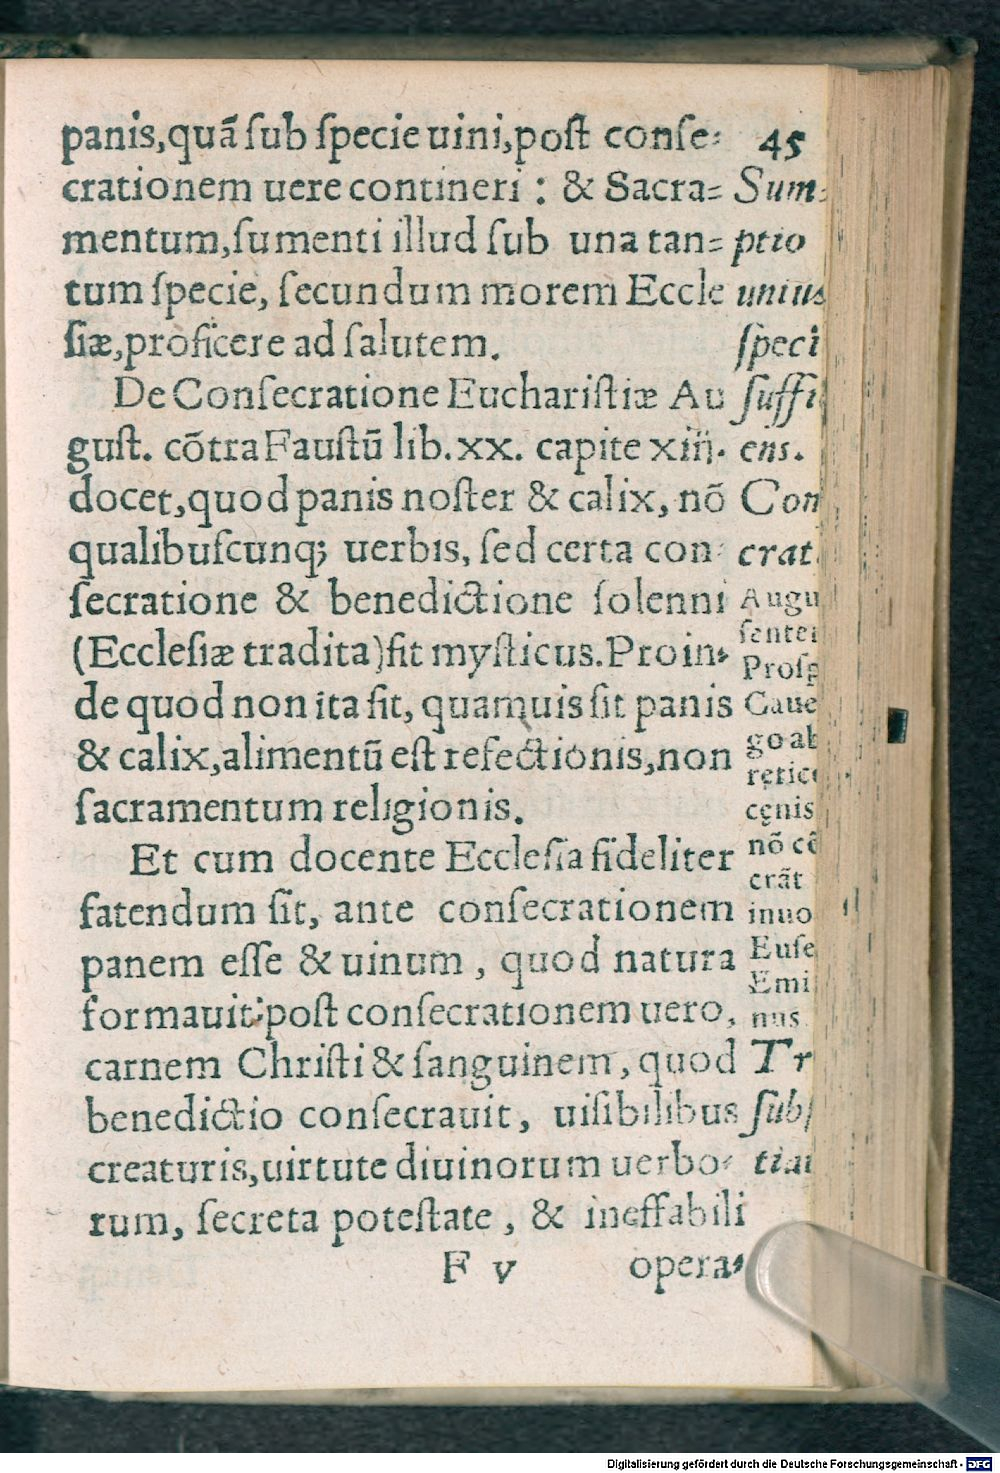 panis,quã ſub ſpecie uini,poſt conſe-
crationem uere contineri : & Sacra-
mentum,ſumenti illud ſub una tan-
tum ſpecie, ſecundum morem Eccle
ſiæ,proficere ad ſalutem.
De Conſecratione Euchariſtiæ Au
guſt. cõtra Fauſtũ lib.xx. capite xiij.
docet,quod panis noſter & calix, nõ
qualibuſcunq; uerbis, ſed certa con-
ſecratione & benedictione ſolenni
(Eccleſiæ tradita)fit myſticus.Proin-
de quod non ita fit, quamuis ſit panis
& calix,alimentũ eſt refectionis,non
ſacramentum religionis.
Et cum docente Eccleſia fideliter
fatendum ſit, ante conſecrationem
panem eſſe & uinum , quod natura
formauit:poſt conſecrationem uero,
carnem Chriſti & ſanguinem, quod
benedictio conſecrauit, uiſibilibus
creaturis,uirtute diuinorum uerbo-
rum, ſecreta poteſtate , & ineffabili
F v opera-
45
Sum-
ptio
unius
ſpeci
ſuffi
ens.
Con
crat
Augu
ſenten
Proſp
Gaue
go ab
retico
cęnis
nõ cõ
crãt
inuo
Euſe
Emi
nus
Tr
ſubſ
tiat
Digitalisierung gefördert durch die Deutsche Forschungsgemeinschaft - DFG